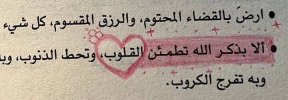 • ارض بالقضاء المحتوم، والرزق المقسوم، كل شيء
• ألا بذكر الله تطمئن القلوب، وتحط الذنوب،
وبه تفرج الكروب.